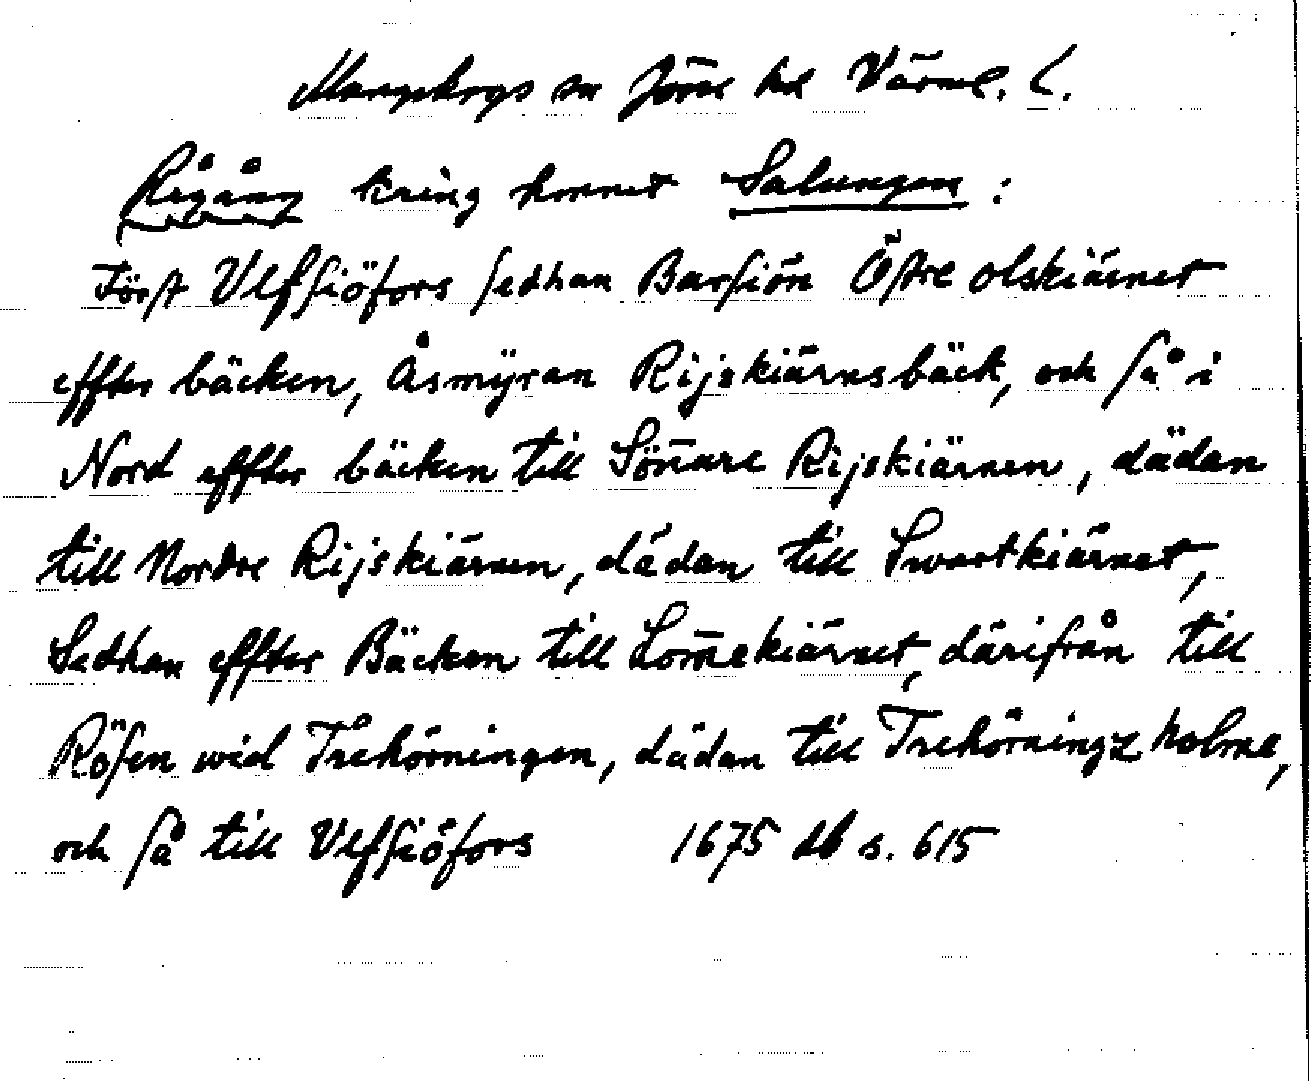 Mangskogs sn Jösse hd Värml. L.
Rågång kring honnet Salungen :
Först Ulfsiöfors sedhan Barsiön Östre olskiärnet
effter bäcken, Åsmÿran Rijskiärnsbäck, och så i
Nord effter bäcken till Sönnare Rijskiärnen, dädan
till Nordre Rijskiärnen, dädan till Swartkiärnet,
Sedhan effter Bäcken till Lom̄ekiärnet, därifrån till
Rösen wid Trehörningen, dädan till Trehörningz holme,
och så till Ulfsiöfors 1675 db s. 615